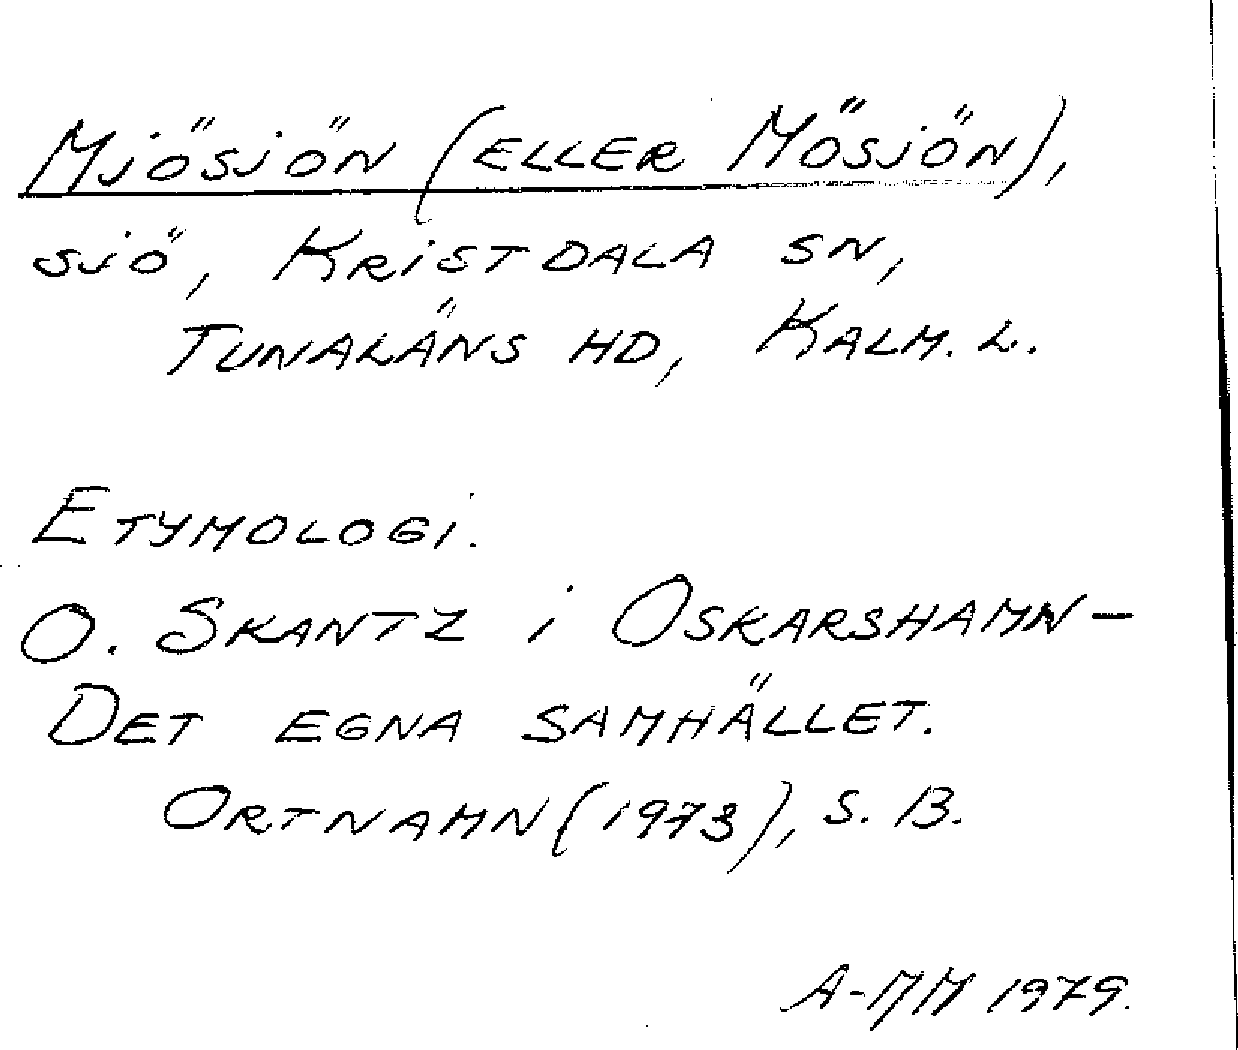 Mjösjön (eller Mösjön),
sjö, Kristdala sn,
Tunaläns hd, Kalm. l.
Etymologi.
O. Skantz i Oskarshamn –
Det egna samhället.
Ortnamn (1973), s. 13.
A-MM 1979.